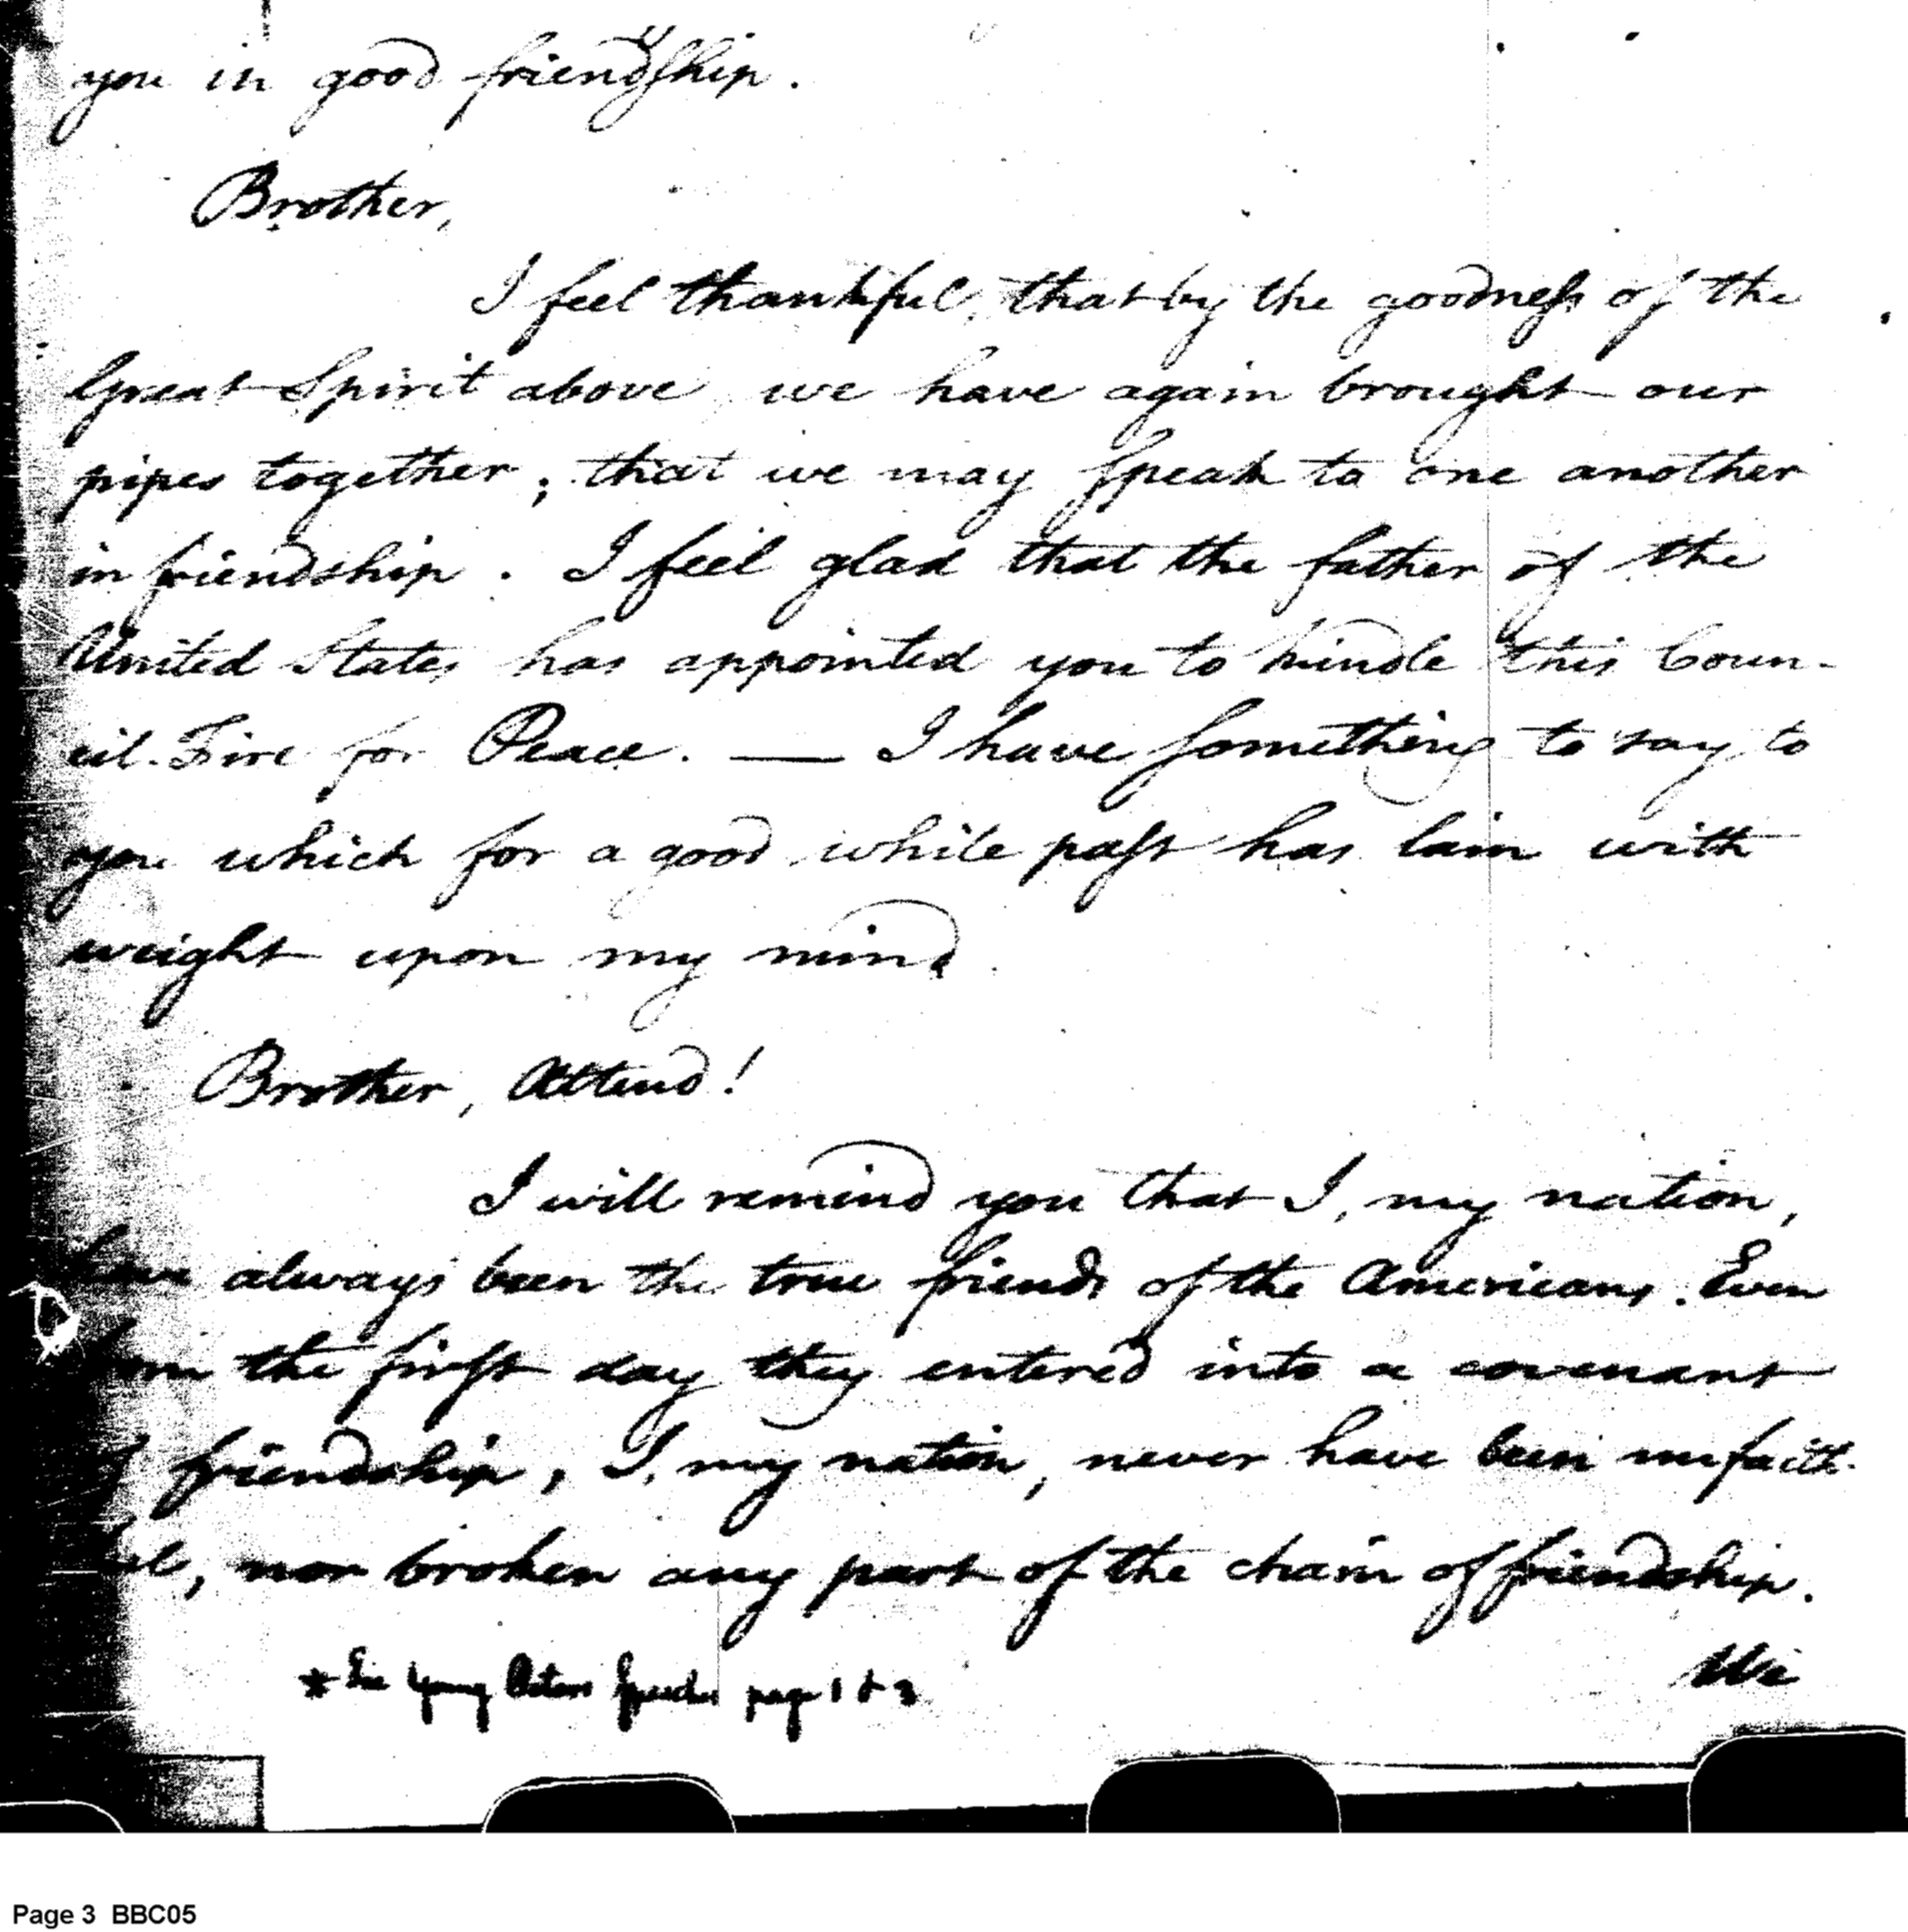 you in good friendship.
Brother,
I feel thankful, that by the goodneſs of the
Great Spirit above we have again brought our
pipes together; that we may ſpeak to one another
in friendship. I feel glad that the father of the
United States has appointed you to kindle this Coun-
cil-Fire for Peace. — I have ſomething to say to
you which for a good while paſt has lain with
weight upon my mind.
Brother, Attend!
I will remind you that I, my nation,
have always been the true friends of the Americans. Even
from the firſt day they entered into a covenant
of friendship, I, my nation, never have been unfaith-
ful, nor broken any part of the chain of friendship.
We
* See Young Speeches page 1 &
Page 3 BBC05